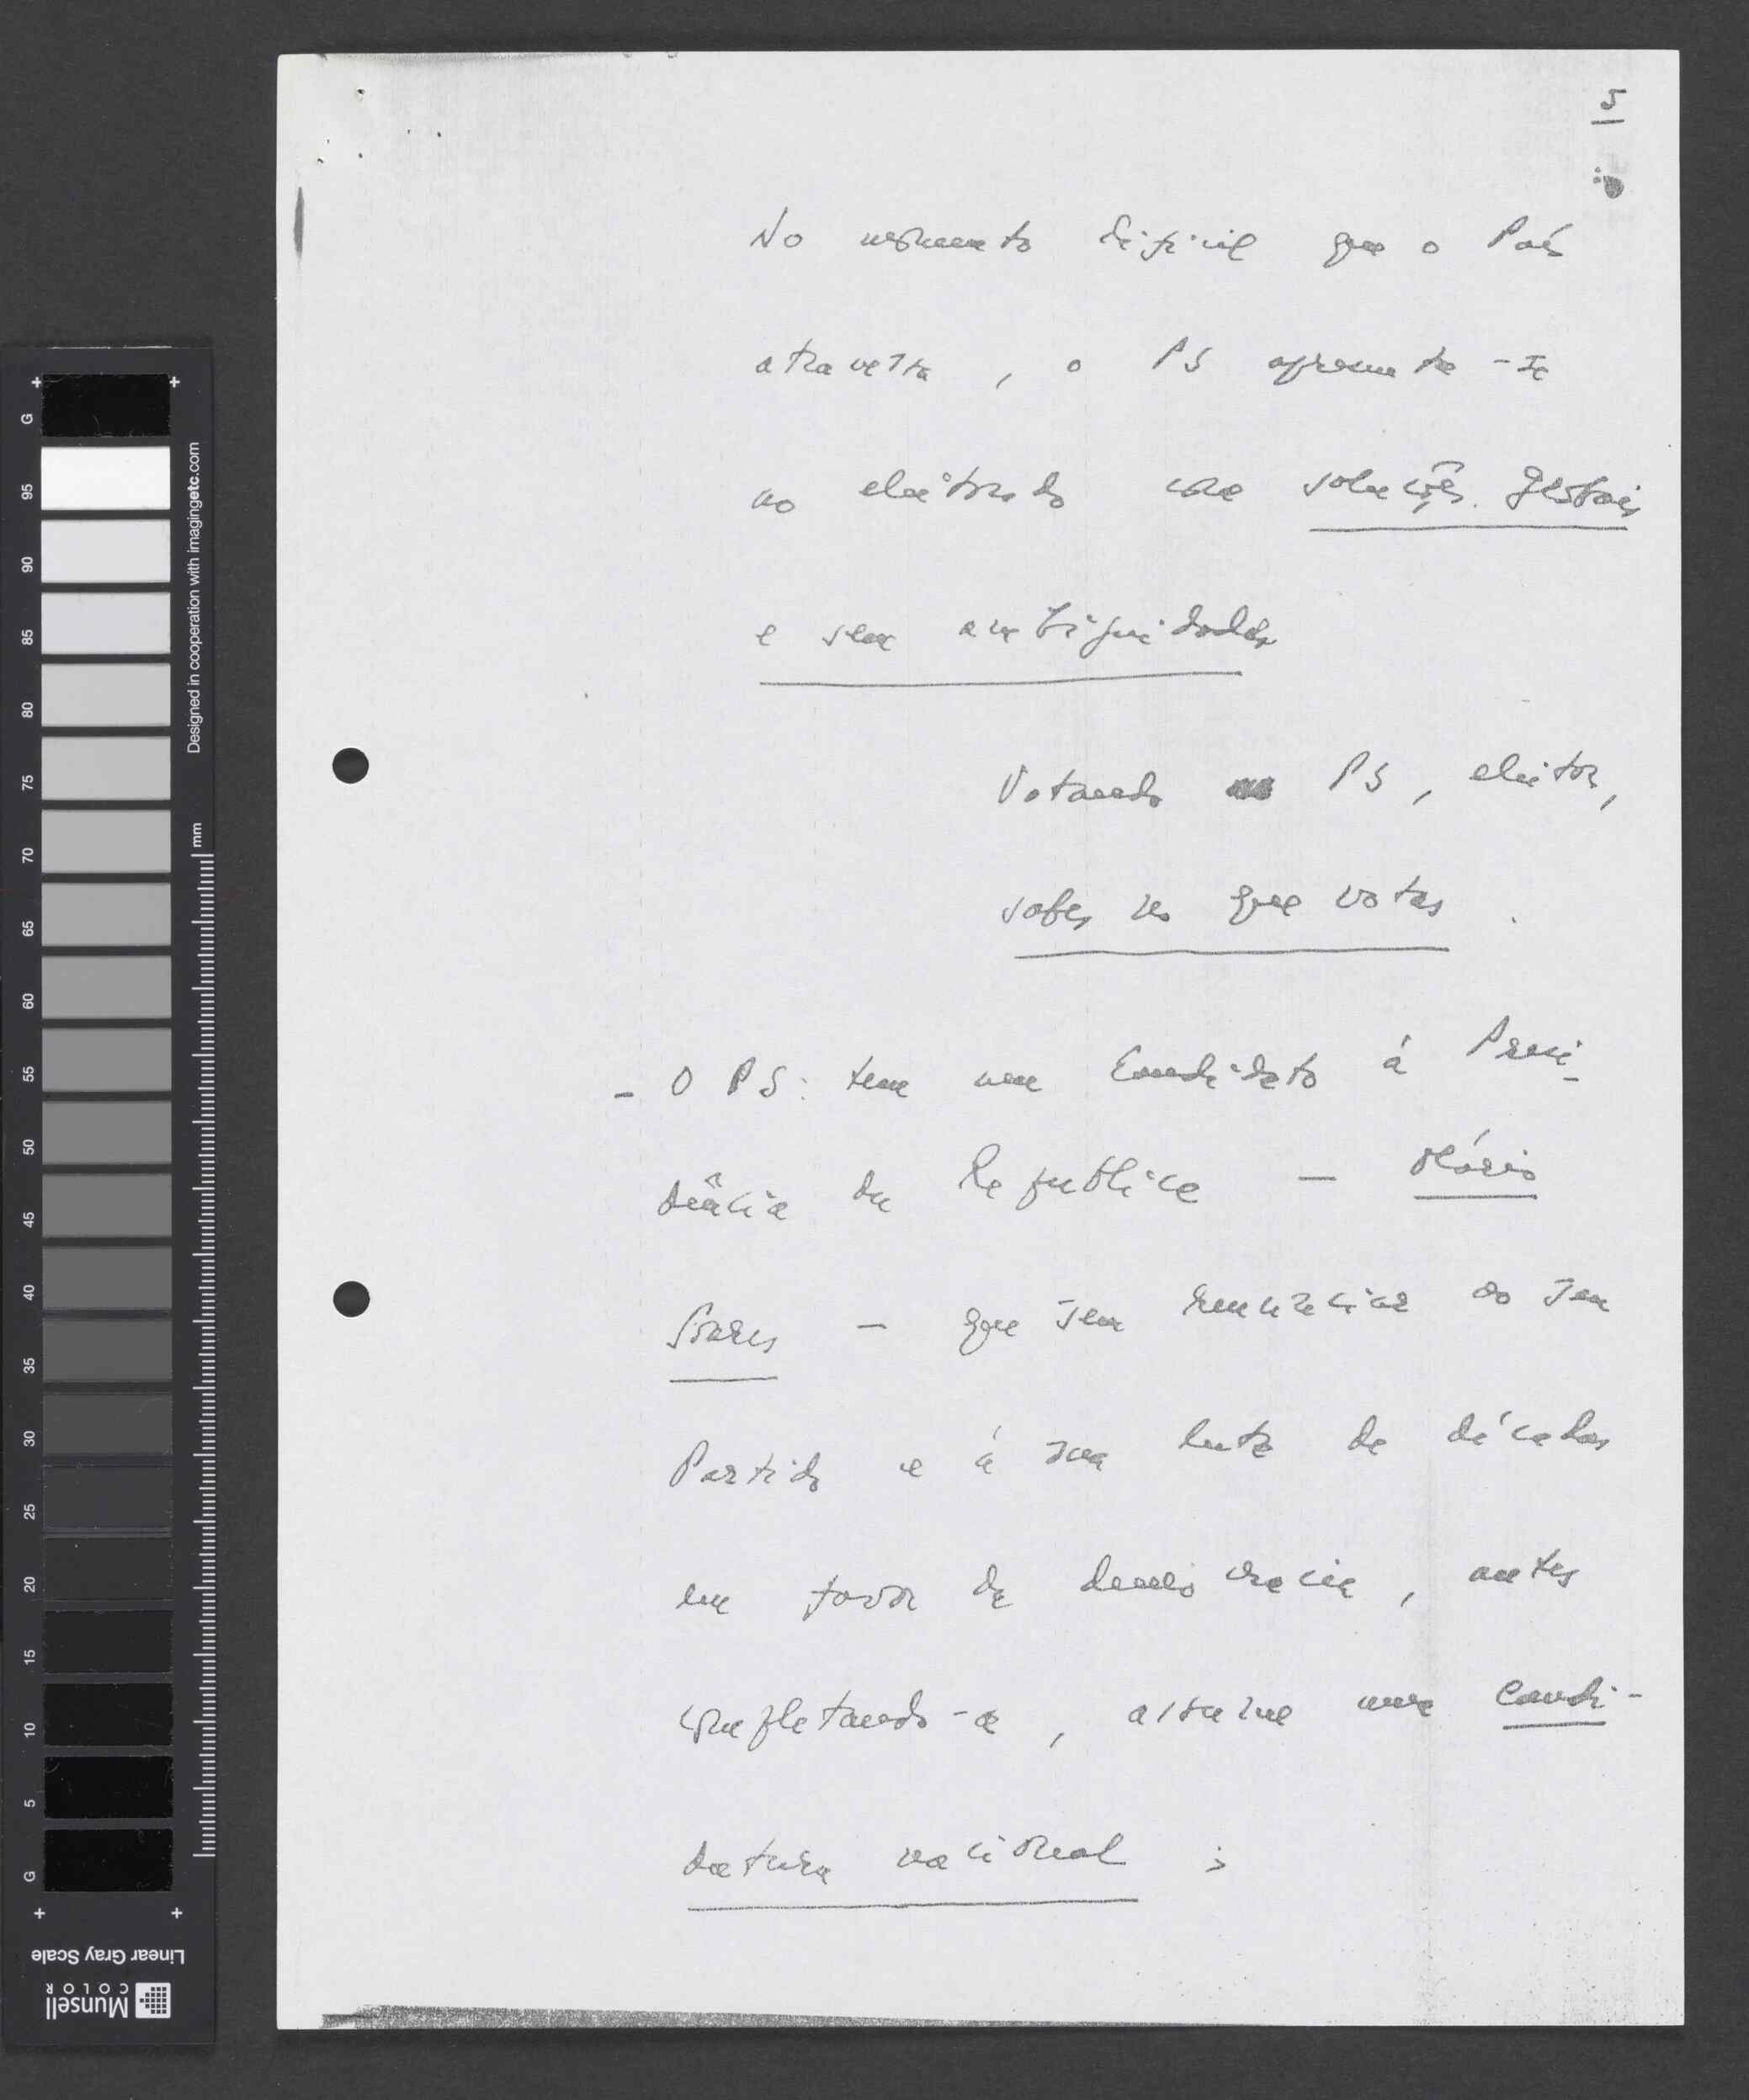 5
No momento difícil que o País
atravessa, o PS apresenta-se
ao eleitorado com soluções globais
e sem ambiguidades
Votando PS, eleitor,
sabes no que votas.
- O PS: tem um Candidato à Presi-
dência da República — Mário
Soares — que sem renunciar ao seu
Partido e à sua luta de décadas
em favor da democracia, antes
completando-a, assume uma candi-
datura nacional;
G
95
90
85
80
75
70
65
60
55
50
45
40
35
30
25
20
15
10
5
G
Designed in cooperation with imagingetc.com
mm
Linear Gray Scale
Munsell
COLOR